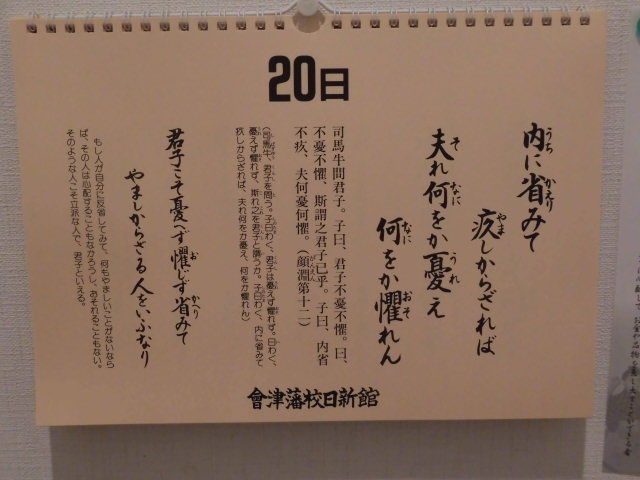 20日
内に省みて
疚しからざれば
夫れ何をか憂え
何をか懼れん
司馬牛問君子。子曰、君子不憂不懼。曰、
不憂不懼、斯謂之君子已乎。子曰、内省
不疚、夫何憂何懼。（顔淵第十二）
（司馬牛、君子を問う。子曰わく、君子は憂えず懼れず。曰わく、
憂えず懼れず、斯れ之を君子と謂うか。子曰わく、内に省みて
疚しからざれば、夫れ何をか憂え、何をか懼れん）
君子こそ憂へず懼ぢず省みて
やましからざる人をいふなり
もし人が自分に反省してみて、何もやましいことがないなら
ば、その人は心配することもなかろうし、おそれることもない。
そのような人こそ立派な人で、君子といえる。
會津藩校日新館